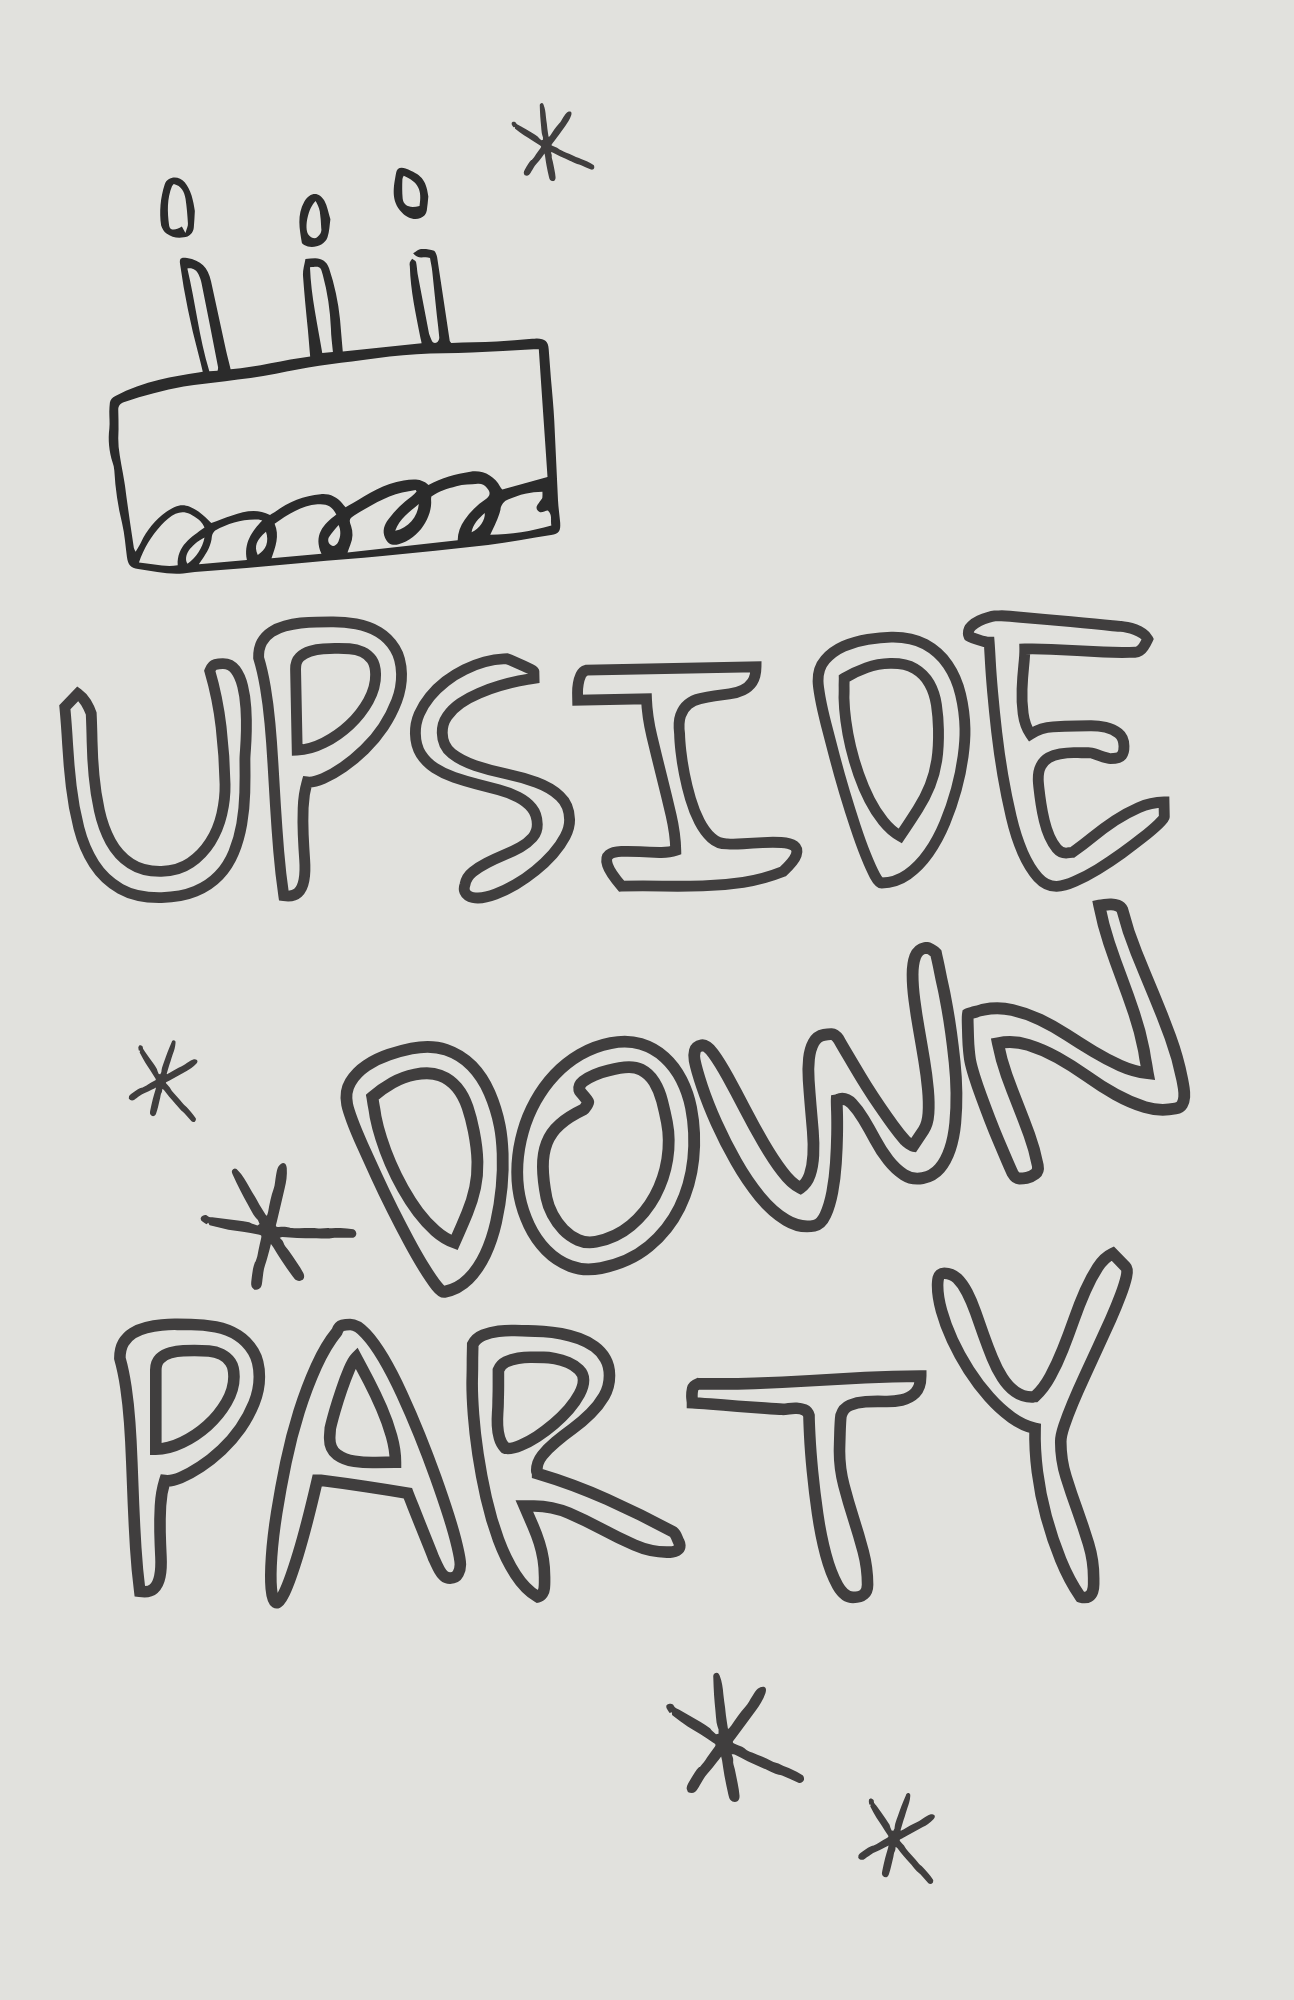 UPSIDE
DOWN
PARTY